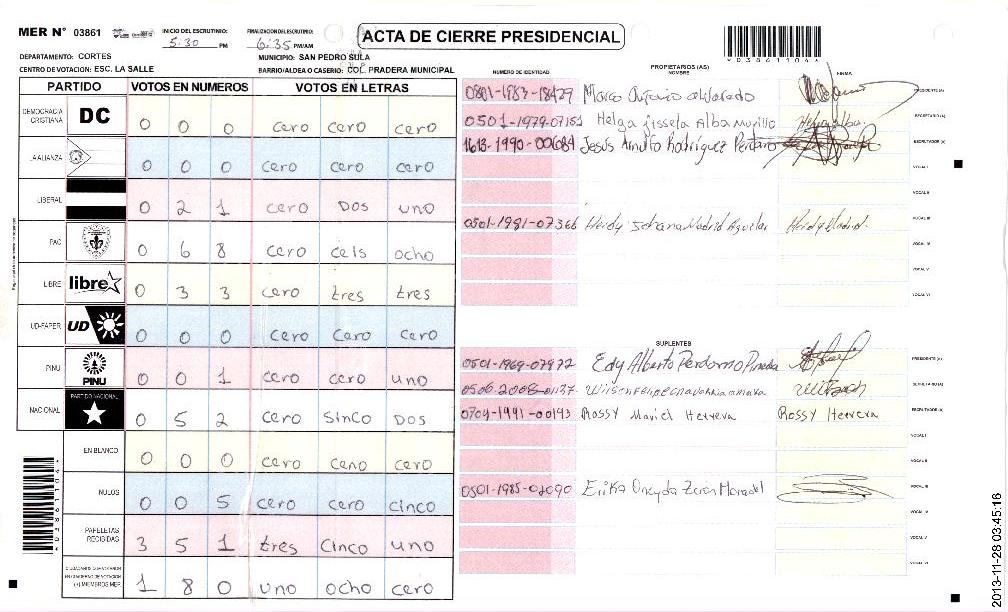 MER N° 03861
INICIO DEL ESCRUTINIO: 5:30 PM
FINALIZACION DEL ESCRUTINIO: 6:35 PM/AM
ACTA DE CIERRE PRESIDENCIAL
DEPARTAMENTO: CORTES
MUNICIPIO: SAN PEDRO SULA
CENTRO DE VOTACION: ESC. LA SALLE
BARRIO/ALDEA O CASERIO: COL. PRADERA MUNICIPAL
PARTIDO VOTOS EN NUMEROS VOTOS EN LETRAS
DEMOCRACIA CRISTIANA DC 0 0 0 cero cero cero
LA ALIANZA 0 0 0 cero cero cero
LIBERAL 0 2 1 cero DOS uno
PAC 0 6 8 cero ceis ocho
LIBRE libre 0 3 3 cero tres tres
UD-FAPER UD 0 0 0 cero cero cero
PINU PINU 0 0 1 cero cero uno
NACIONAL PARTIDO NACIONAL 0 5 2 cero SINCO DOS
EN BLANCO 0 0 0 cero cero cero
NULOS 0 0 5 cero cero cinco
PAPELETAS RECIBIDAS 3 5 1 tres cinco uno
CIUDADANOS QUE VOTARON EN CUADERNO DE VOTACION (+) MIEMBROS MER 1 8 0 uno ocho cero
NUMERO DE IDENTIDAD PROPIETARIOS (AS) NOMBRE FIRMA
0801-1983-18429 Marco Antonio alvarado PRESIDENTE (A)
0501-1979-07151 Helga Jissela Alba Murillo Helga Alba. SECRETARIO (A)
1613-1990-00684 Jesús Arnulfo Rodriguez Perdomo ESCRUTADOR (A)
VOCAL I
VOCAL II
0501-1981-07366 Heidy Madrid Aguilar Heidy Madrid. VOCAL III
VOCAL IV
VOCAL V
VOCAL VI
SUPLENTES
0501-1969-07972 Edy Alberto Perdomo Pineda PRESIDENTE (A)
0506-2008-01137 SECRETARIO (A)
0704-1991-00193 Rossy Mariel Herrera Rossy Herrera ESCRUTADOR (A)
VOCAL I
VOCAL II
0501-1985-02090 Erika VOCAL III
VOCAL IV
VOCAL V
VOCAL VI
2013-11-28 03:45:16